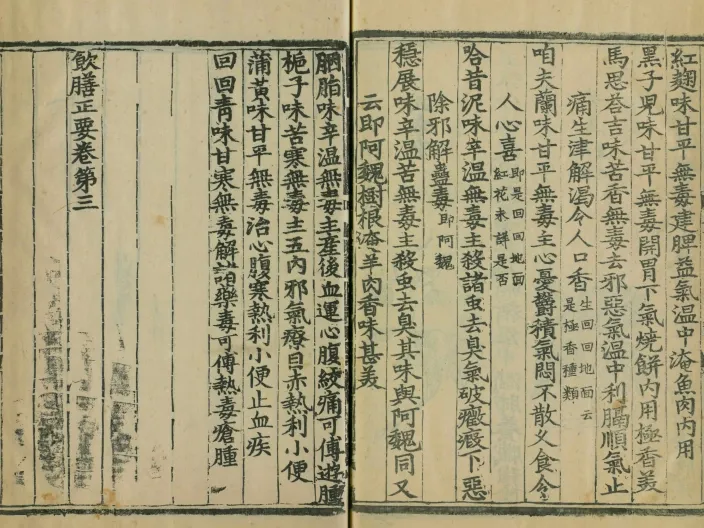 紅麴味甘平無毒建脾益氣溫中淹魚肉內用
黑子兒味甘平無毒開胃下氣燒餅內用極香美
馬思荅吉味苦香無毒去邪惡氣溫中利膈順氣止
痛生津解渴令人口香生回回地面云是極香種類
咱夫蘭味甘平無毒主心憂鬱積氣悶不散乂食令
人心喜即是回回地面紅花未詳是否
哈昔泥味辛溫無毒主殺諸虫去臭氣破癥瘕下惡
除邪解蠱毒即阿魏
穩展味辛溫苦無毒主殺虫去臭其味與阿魏同又
云即阿魏樹根淹羊肉香味甚美
胭脂味辛溫無毒主產後血運心腹絞痛可傅遊腫
梔子味苦寒無毒主五內邪氣療目赤熱利小便
蒲黃味甘平無毒治心腹寒熱利小便止血疾
回回青味甘寒無毒解諸藥毒可傅熱毒瘡腫
飲膳正要卷第三